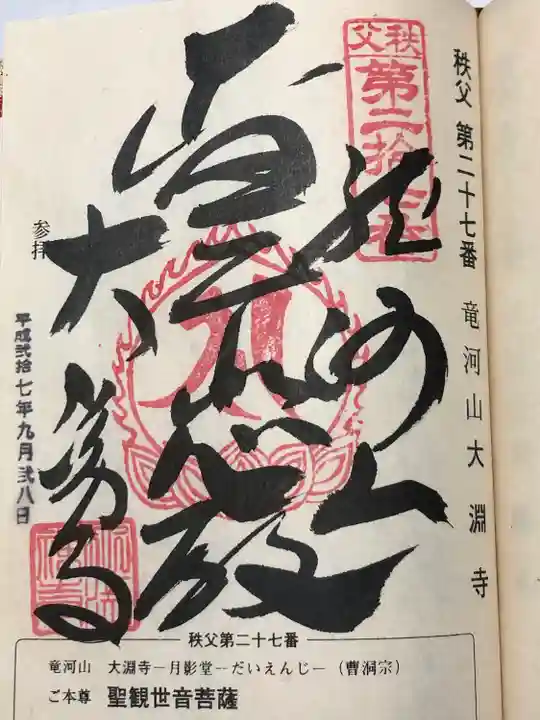 秩父 第二十七番 竜河山大淵寺
秩父
第二拾七番
龍河山
大
参拝
平成弐拾七年九月弐八日
秩父第二十七番
竜河山 大淵寺−月影堂−だいえんじ−(曹洞宗)
ご本尊 聖観世音菩薩